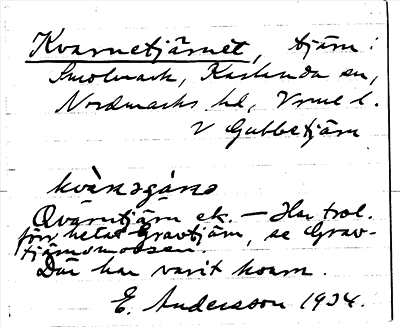 Kvarnetjärnet, tjärn i
Smolmark, Karlanda sn,
Nordmarks hd, Vrml l.
V Gubbetjärn
Qvarntjärn ek. — Har trol.
förr hetat Gravtjärn, se Grav-
tjärnsmossen.
Där har varit kvarn.
E. Andersson 1934.